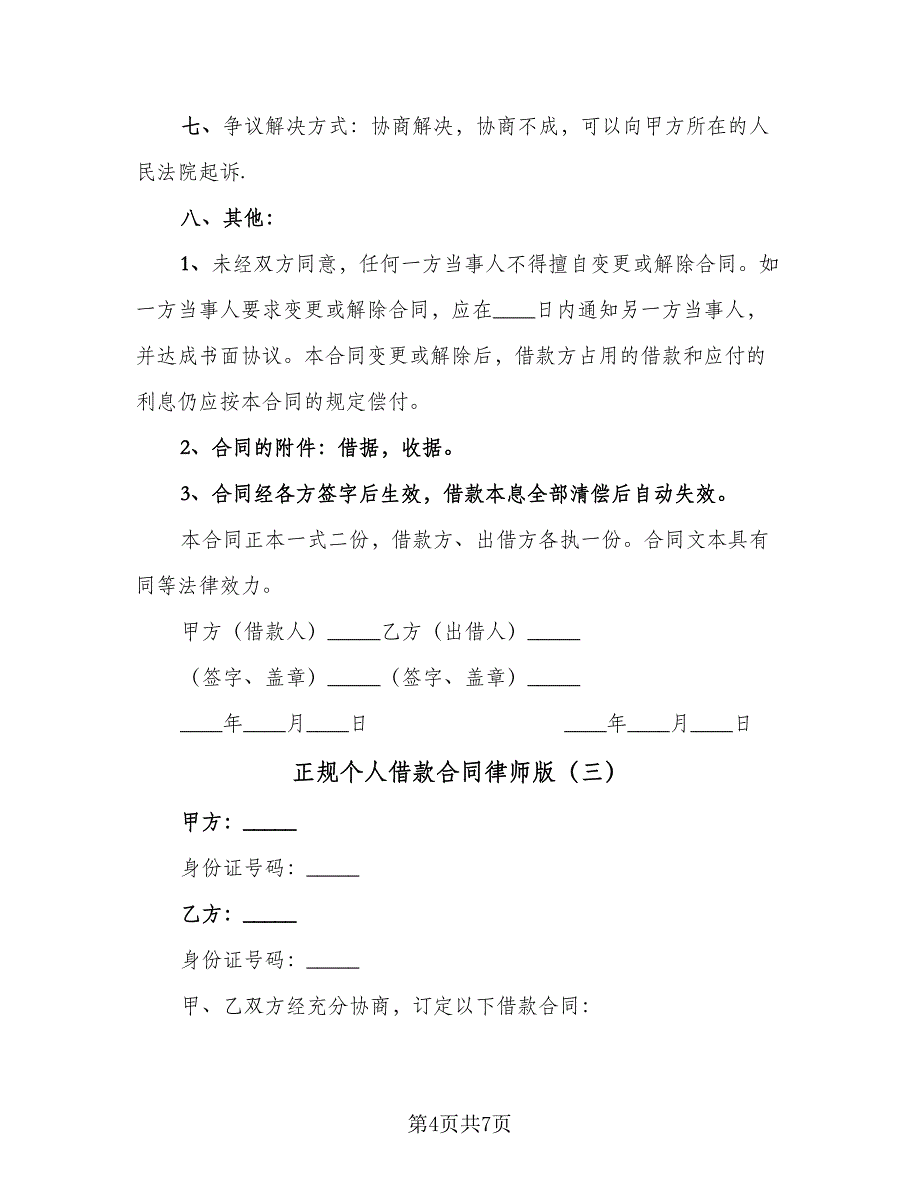 七、争议解决方式：协商解决，协商不成，可以向甲方所在的人
民法院起诉.
八、其他：
1、未经双方同意，任何一方当事人不得擅自变更或解除合同。如
一方当事人要求变更或解除合同，应在____日内通知另一方当事人，
并达成书面协议。本合同变更或解除后，借款方占用的借款和应付的
利息仍应按本合同的规定偿付。
2、合同的附件：借据，收据。
3、合同经各方签字后生效，借款本息全部清偿后自动失效。
本合同正本一式二份，借款方、出借方各执一份。合同文本具有
同等法律效力。
甲方（借款人）_____乙方（出借人）_____
（签字、盖章）_____（签字、盖章）_____
____年____月____日 ____年____月____日
正规个人借款合同律师版（三）
甲方：_____
身份证号码：_____
乙方：_____
身份证号码：_____
甲、乙双方经充分协商，订定以下借款合同：
第4页共7页